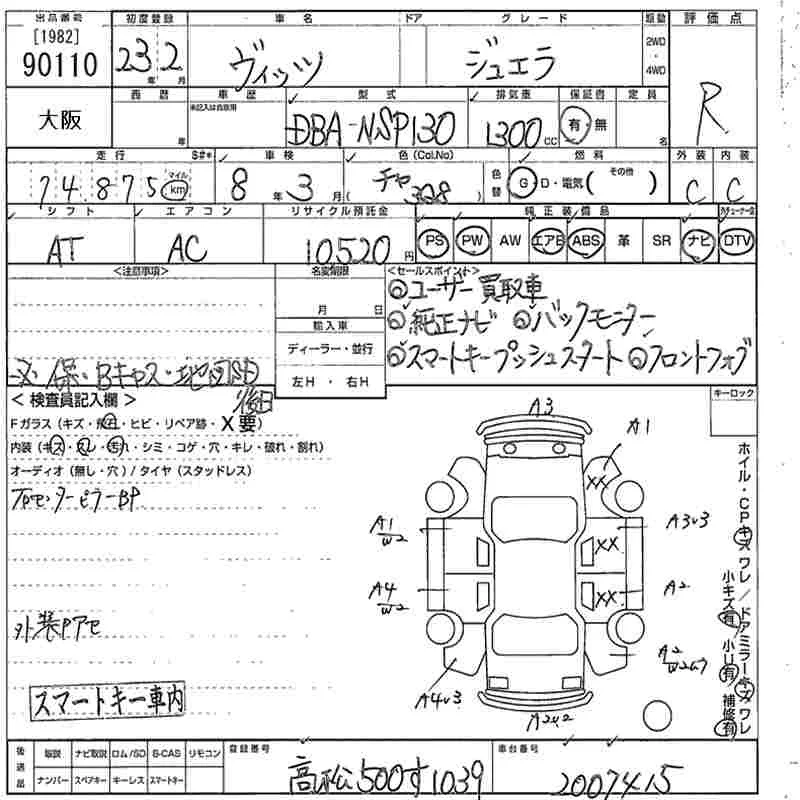 出品番号 初度登録 車名 ドア グレード 駆動 評価点
[1982]
90110 23年 2月 ヴィッツ ジュエラ 2WD・4WD R
西暦 車歴 型式 排気量 保証書 定員
未記入は自家用
大阪 年 DBA-NSP130 1300cc 有・無 名
走行 $#* 車検 色(Col.No) 色替 燃料 外装 内装
74,875 マイル km 8年 3月 チャ ( 328 ) G・D・電気( その他 ) C C
シフト エアコン リサイクル預託金 純正装備品
AT AC 10520円 PS PW AW エアB ABS 革 SR ナビ DTV
<注意事項> 名変期限 <セールスポイント>
月 日 ◎ユーザー買取車
輸入車 ◎純正ナビ ◎バックモニター
ディーラー・並行 ◎スマートキープッシュスタート ◎フロントフォグ
左H・右H
保・Bキャス・地図SD
後日
<検査員記入欄> キーロック
Fガラス(キズ・飛石・ヒビ・リペア跡・X要)
内装(キズ・スレ・汚れ・シミ・コゲ・穴・キレ・破れ・割れ)
オーディオ(無し・穴)/タイヤ(スタッドレス)
外装Pアセ
スマートキー車内
A3
A1
XX
A1 W2 XX A3U3
A4 W2 XX A2
A2
A4U3
A2U2
ホイル・CPキズ ワレ/ドアミラーキズ ワレ
小キズ有 小U有 補修有
後送品 取説 ナビ取説 ロム/SD B-CAS リモコン
ナンバー スペアキー キーレス スマートキー
登録番号 高松500す1039
車台番号 2007415